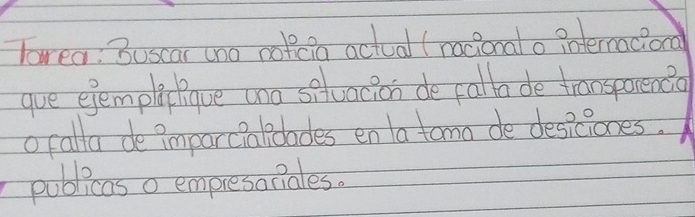 Tarea: Buscar una noticia actual (nacional o internacional
que ejemplifique una situación de falta de transparencia
o falta de imparcialidades en la toma de desiciones.
publicas o empresariales.